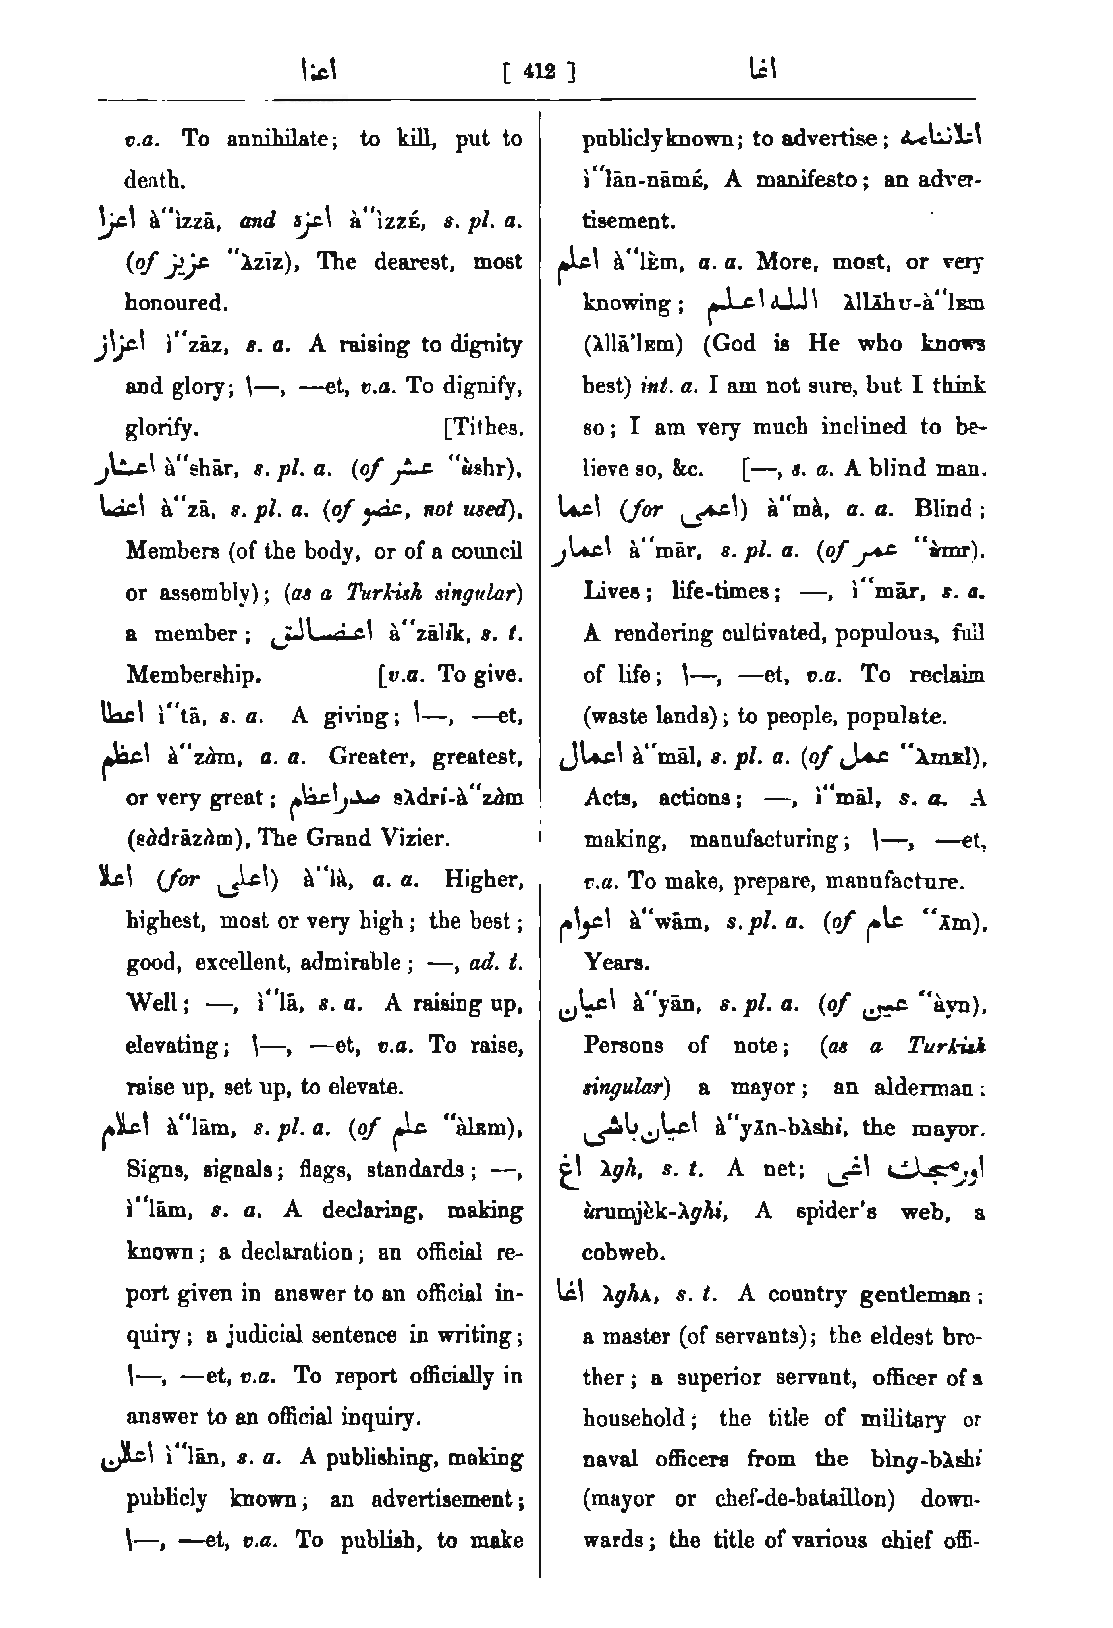 اعزا [ 412 ] اغا
v.a. To annihilate; to kill, put to
death.
اعزا à“ìzzā, and اعزه à“ìzzÉ, s. pl. a.
(of عزیز “λzīz), The dearest, most
honoured.
اعزاز ì“zāz, s. a. A raising to dignity
and glory; \—, —et, v.a. To dignify,
glorify. [Tithes.
اعشار à“shār, s. pl. a. (of عشر “ùshr),
اعضا à“zā, s. pl. a. (of عضو, not used),
Members (of the body, or of a council
or assembly); (as a Turkish singular)
a member; اعضالق à“zālík, s. t.
Membership. [v.a. To give.
اعطا ì“tā, s. a. A giving; \—, —et,
اعظم à“zàm, a. a. Greater, greatest,
or very great; صدراعظم sλdri-à“zàm
(sàdrāzàm), The Grand Vizier.
اعلا (for اعلی) à“là, a. a. Higher,
highest, most or very high; the best;
good, excellent, admirable; —, ad. t.
Well; —, ì“lā, s. a. A raising up,
elevating; \—, —et, v.a. To raise,
raise up, set up, to elevate.
اعلام à“lām, s. pl. a. (of علم “àlᴇm),
Signs, signals; flags, standards; —,
ì“lām, s. a. A declaring, making
known; a declaration; an official re-
port given in answer to an official in-
quiry; a judicial sentence in writing;
\—, —et, v.a. To report officially in
answer to an official inquiry.
اعلان ì“lān, s. a. A publishing, making
publicly known; an advertisement;
\—, —et, v.a. To publish, to make
publicly known; to advertise; اعلاننامه
ì“lān-nāmÉ, A manifesto; an adver-
tisement.
اعلم à“lèm, a. a. More, most, or very
knowing; الله اعلم λllāhu-à“lᴇm
(λllā’lᴇm) (God is He who knows
best) int. a. I am not sure, but I think
so; I am very much inclined to be-
lieve so, &c. [—, s. a. A blind man.
اعما (for اعمی) à“mà, a. a. Blind;
اعمار à“mār, s. pl. a. (of عمر “àmr),
Lives; life-times; —, ì“mār, s. a.
A rendering cultivated, populous, full
of life; \—, —et, v.a. To reclaim
(waste lands); to people, populate.
اعمال à“māl, s. pl. a. (of عمل “λmᴇl),
Acts, actions; —, ì“māl, s. a. A
making, manufacturing; \—, —et,
v.a. To make, prepare, manufacture.
اعوام à“wām, s. pl. a. (of عام “ām),
Years.
اعیان à“yān, s. pl. a. (of عین “àyn),
Persons of note; (as a Turkish
singular) a mayor; an alderman;
اعیان باشی à“yān-bλshi, the mayor.
اغ λgh, s. t. A net; اورمجك اغی
ùrumjèk-λghi, A spider's web, a
cobweb.
اغا λghᴀ, s. t. A country gentleman;
a master (of servants); the eldest bro-
ther; a superior servant, officer of a
household; the title of military or
naval officers from the bìng-bλshi
(mayor or chef-de-bataillon) down-
wards; the title of various chief offi-